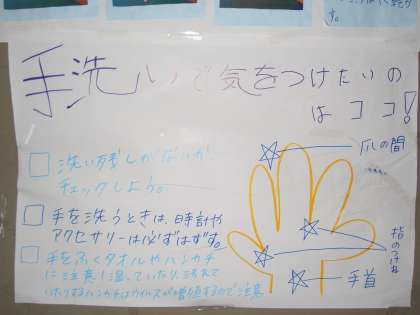 す。
手洗いで気をつけたいの
はココ!
洗い残しがないか
チェックしよう。
手を洗うときは、時計や
アクセサリーは必ずはずす。
手をふくタオルやハンカチ
に注意!湿っていたり、汚れて
いたりするハンカチはウイルスが増殖するので注意
爪の間
指の
手首